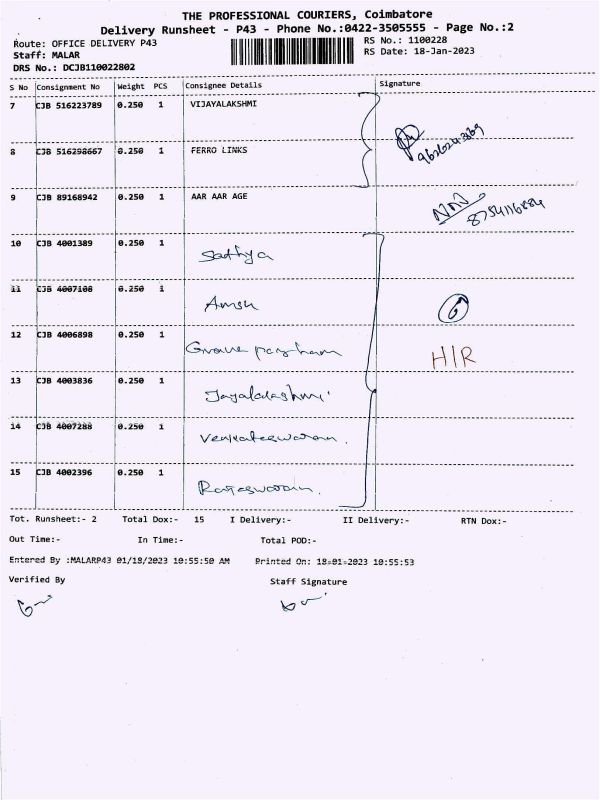 THE PROFESSIONAL COURIERS, Coimbatore
Delivery Runsheet - P43 - Phone No.:0422-3505555 - Page No.:2
Route: OFFICE DELIVERY P43
RS No.: 1100228
Staff: MALAR
RS Date: 18-Jan-2023
DRS No.: DCJB110022802
S No Consignment No Weight PCS Consignee Details Signature
7 CJB 516223789 0.250 1 VIJAYALAKSHMI
8 CJB 516298667 0.250 1 FERRO LINKS
9 CJB 89168942 0.250 1 AAR AAR AGE
8754116884
10 CJB 4001389 0.250 1 Sathya
11 CJB 4007108 0.250 1 Amsu
12 CJB 4006898 0.250 1
H/R
13 CJB 4003836 0.250 1
14 CJB 4007288 0.250 1 Venkateswaran.
15 CJB 4002396 0.250 1
Tot. Runsheet:- 2 Total Dox:- 15 I Delivery:- II Delivery:- RTN Dox:-
Out Time:- In Time:- Total POD:-
Entered By :MALARP43 01/18/2023 10:55:50 AM Printed On: 18-01-2023 10:55:53
Verified By Staff Signature